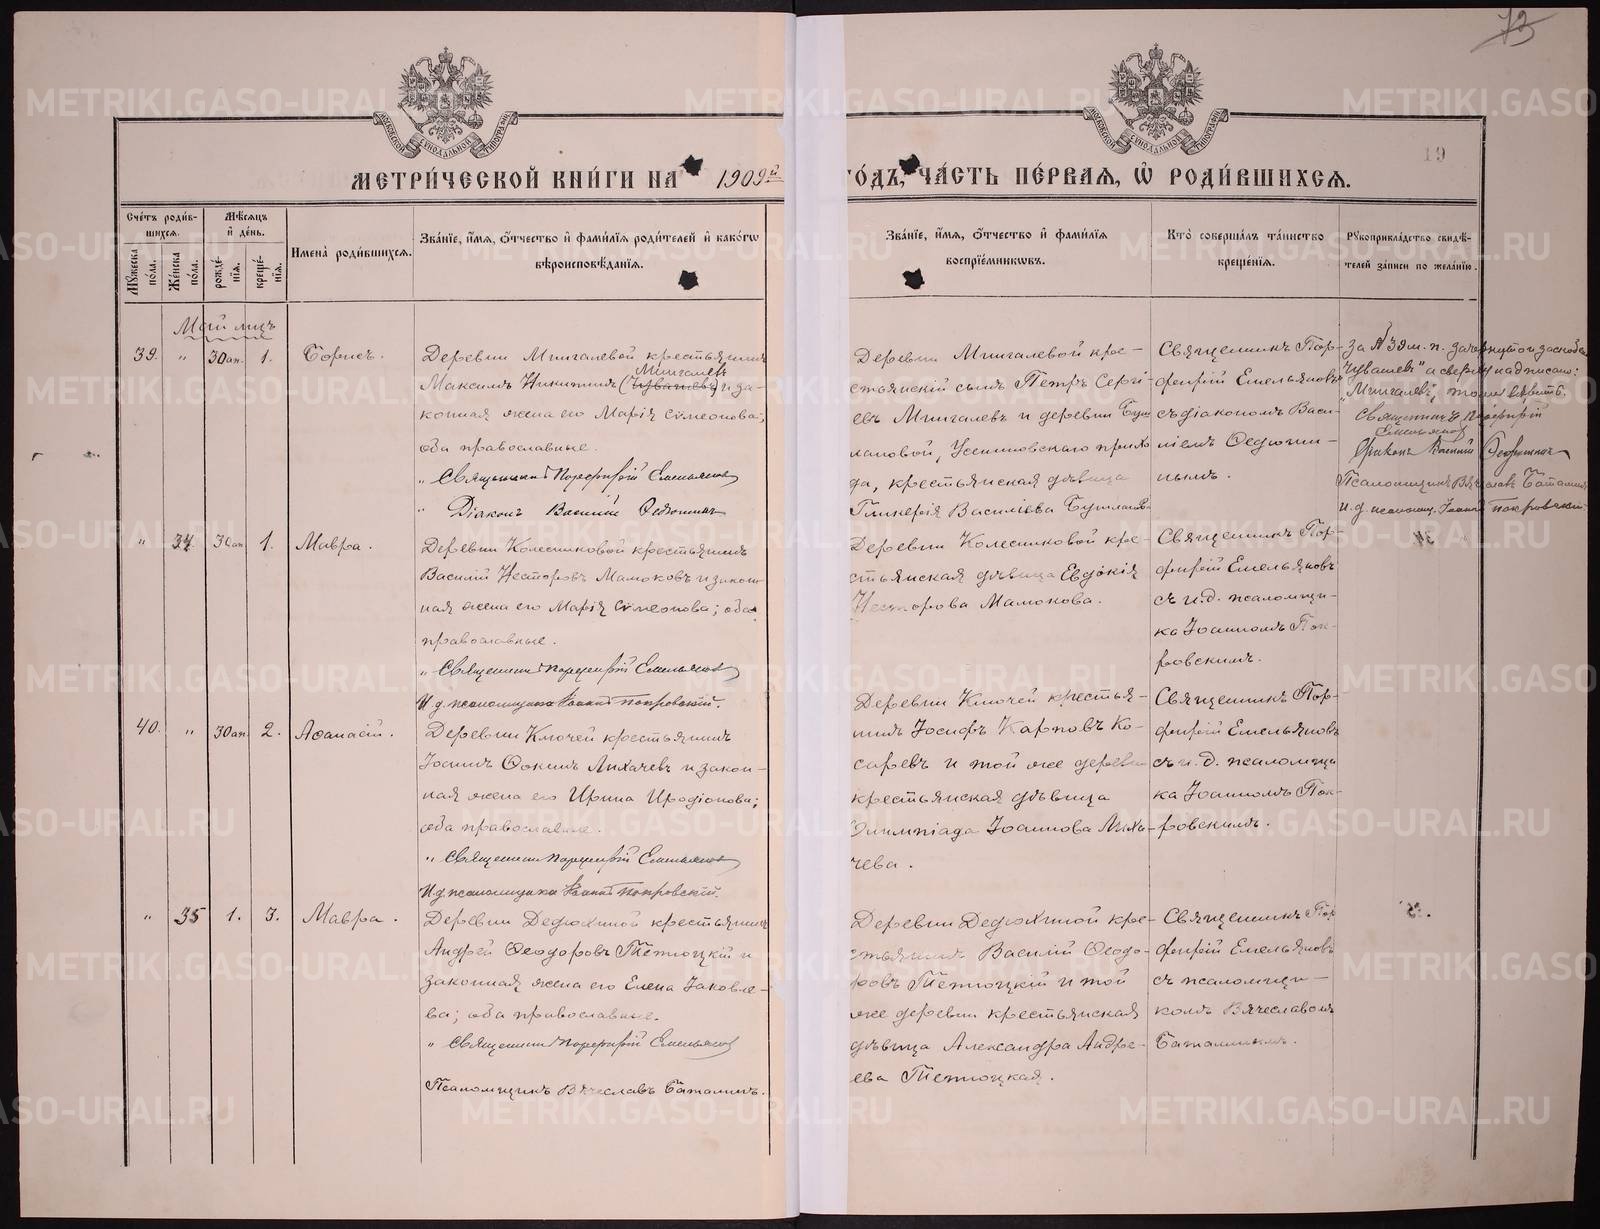 73
19
МЕТРИ́ЧЕСКОЙ КНИ́ГИ НА 1909й
ГО́ДЪ, ЧА́СТЬ ПЕ́РВАЯ, Ѡ РОДИ́ВШИХСЯ.
Сче́тъ роди́в-
шихся.
Мѣ́сяцъ
и҆ де́нь.
Му́жеска
по́ла.
Же́нска
по́ла.
рожде́-
нія.
креще́-
нія.
Имена̀ роди́вшихся.
Зва́ніе, и҆́мя, ѻ҆́тчество и҆ фами́лія роди́телей и҆ како́гѡ
вѣроисповѣ́данія.
Зва́ніе, и҆́мя, ѻ҆́тчество и҆ фами́лія
воспріе́мникѡвъ.
Кто̀ соверша́лъ та́инство
креще́нія.
Рꙋкоприкла́дство свидѣ́-
телей за́писи по жела́нію.
Май мцъ
39. " 30 ап. 1. Борисъ.
Деревни Мингалевой крестьянинъ
Мингалевъ
Максимъ Никитинъ (Чувашевъ) и за-
конная жена его Марія Сѵмеонова;
оба православные.
" Священникъ Порфирій Емельяновъ
" Діаконъ Василій Федюшинъ
Деревни Мингалевой кре-
стьянскій сынъ Петръ Сергі-
евъ Мингалевъ и деревни Буш
лановой, Усениновскаго прихо
да, крестьянская дѣвица
Гликерія Василіева Бушланова
Священникъ Пор-
фирій Емельяновъ
съ діакономъ Васи-
ліемъ Федюши-
нымъ.
За № 39 м. п. зачеркнуто и заскоблено
"Чувашевъ" а сверху надписано:
"Мингалевъ", тому вѣрить.
Священникъ Порфирій
Емельяновъ
Діаконъ Василій Федюшинъ
Псаломщикъ Вячеславъ Баталинъ
и. д. псаломщ. Іоаннъ Покровскій
" 34. 30 ап 1. Мавра.
Деревни Колесниковой крестьянинъ
Василій Несторовъ Мамоковъ и закон-
ная жена его Марія Сѵмеонова; оба
православные.
" Священникъ Порфирій Емельяновъ
И д. псаломщика Іоаннъ Покровскій.
Деревни Колесниковой кре-
стьянская дѣвица Евдокія
Несторова Мамокова.
Священникъ Пор-
фирій Емельяновъ
съ и. д. псаломщи-
ка Іоанномъ Пок-
ровскимъ.
40. " 30 ап. 2. Аѳанасій.
Деревни Ключей крестьянинъ
Іоаннъ Ѳокинъ Лихачевъ и закон-
ная жена его Ирина Иродіонова;
оба православные.
" Священникъ Порфирій Емельяновъ
И д. псаломщика Іоаннъ Покровскій.
Деревни Ключей крестья-
нинъ Іосифъ Карповъ Ко-
саревъ и той же деревни
крестьянская дѣвица
Олимпіада Іоаннова Лиха-
чева.
Священникъ Пор-
фирій Емельяновъ
съ и. д. псаломщи
ка Іоанномъ Пок-
ровскимъ.
" 35 1. 3. Мавра.
Деревни Дедюхиной крестьянинъ
Андрей Ѳеодоровъ Тетюцкій и
законная жена его Елена Іаковле-
ва; оба православные.
" Священникъ Порфирій Емельяновъ
Псаломщикъ Вячеславъ Баталинъ.
Деревни Дедюхиной кре-
стьянинъ Василій Ѳеодо-
ровъ Тетюцкій и той
же деревни крестьянская
дѣвица Александра Андре-
ева Тетюцкая.
Священникъ Пор
фирій Емельяновъ
съ псаломщи-
комъ Вячеславомъ
Баталинымъ.